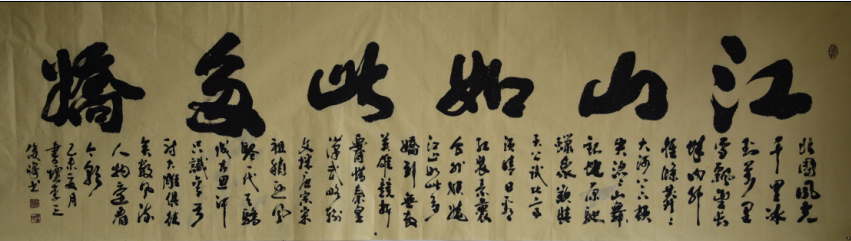 江山如此多嬌
北國風光
千里冰
封萬里
雪飄望長
城內外
惟餘莽々
大河上下頓
失滔々山舞
銀蛇原馳
蠟象欲與
天公試比高
須晴日看
紅裝素裹
分外妖嬈
江山如此多
嬌引無數
英雄競折
腰惜秦皇
漢武略輸
文採唐宗宋
祖稍遜風
騷一代天驕
成吉思汗
只識彎弓
射大雕俱往
矣數風流
人物還看
今朝